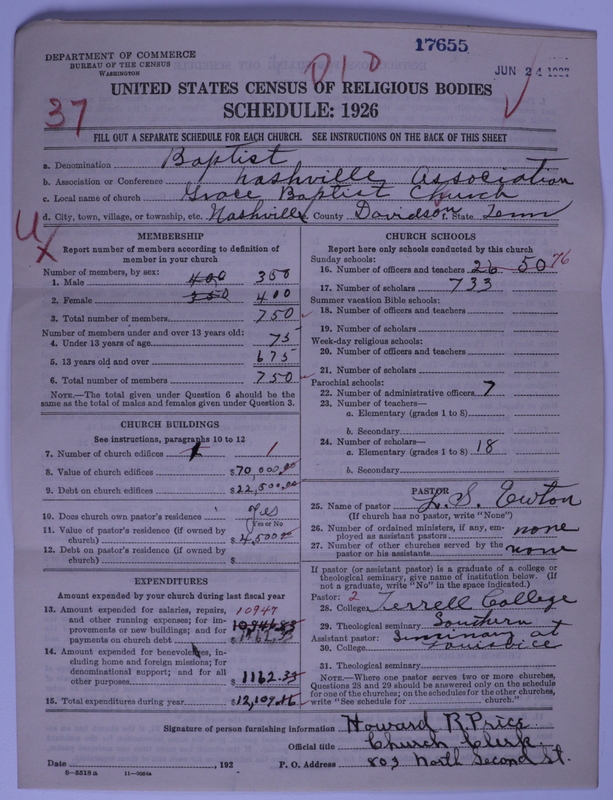 17655
DEPARTMENT OF COMMERCE
BUREAU OF THE CENSUS
WASHINGTON
JUN 24 1927
010
UNITED STATES CENSUS OF RELIGIOUS BODIES
37
SCHEDULE: 1926
FILL OUT A SEPARATE SCHEDULE FOR EACH CHURCH. SEE INSTRUCTIONS ON THE BACK OF THIS SHEET
a. Denomination Baptist
b. Association or Conference Nashville Association
c. Local name of church Grace Baptist Church
d. City, town, village, or township, etc. Nashville County Davidson State Tenn
MEMBERSHIP
Report number of members according to definition of
member in your church
Number of members, by sex:
1. Male 400 350
2. Female 350 400
3. Total number of members 750
Number of members under and over 13 years old:
4. Under 13 years of age 75
5. 13 years old and over 675
6. Total number of members 750
NOTE.—The total given under Question 6 should be
the same as the total of males and females given under Question 3.
CHURCH BUILDINGS
See instructions, paragraphs 10 to 12
7. Number of church edifices 1 1
8. Value of church edifices $70,000.00
9. Debt on church edifices $22,500.00
10. Does church own pastor's residence yes
Yes or No
11. Value of pastor's residence (if owned by
church) $4,500.00
12. Debt on pastor's residence (if owned by
church) $
EXPENDITURES
Amount expended by your church during last fiscal year
13. Amount expended for salaries, repairs, 10947
and other running expenses; for im-
provements or new buildings; and for 10,946.83
payments on church debt $1162.33
14. Amount expended for benevolences, in-
cluding home and foreign missions; for
denominational support; and for all
other purposes $1162.33
15. Total expenditures during year $12,109.16
CHURCH SCHOOLS
Report here only schools conducted by this church
Sunday schools:
16. Number of officers and teachers 26 50 76
17. Number of scholars 733
Summer vacation Bible schools:
18. Number of officers and teachers
19. Number of scholars
Week-day religious schools:
20. Number of officers and teachers
21. Number of scholars
Parochial schools:
22. Number of administrative officers 7
23. Number of teachers—
a. Elementary (grades 1 to 8)
b. Secondary
24. Number of scholars—
a. Elementary (grades 1 to 8) 18
b. Secondary
PASTOR
25. Name of pastor L. S. Ewton
(If church has no pastor, write "None")
26. Number of ordained ministers, if any, em-
ployed as assistant pastors none
27. Number of other churches served by the
pastor or his assistants none
If pastor (or assistant pastor) is a graduate of a college or
theological seminary, give name of institution below. (If
not a graduate, write "No" in the space indicated.)
Pastor: 2
28. College Terrell College
29. Theological seminary Southern
Assistant pastor: Seminary at
30. College Louisville
31. Theological seminary
NOTE.—Where one pastor serves two or more churches,
Questions 28 and 29 should be answered only on the schedule
for one of these churches; on the schedules for the other churches,
write "See schedule for church."
Signature of person furnishing information Howard R. Price
Official title Church Clerk
Date , 192 P. O. Address 803 North Second St.
8-5518 a 11-9554a